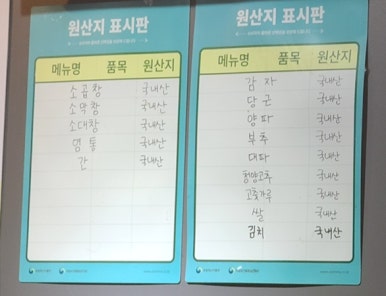 원산지 표시판
메뉴명 품목 원산지
소곱창 국내산
소막창 국내산
소대창 국내산
염통 국내산
간 국내산
원산지 표시판
메뉴명 품목 원산지
감자 국내산
당근 국내산
양파 국내산
부추 국내산
대파 국내산
청양고추 국내산
고춧가루 국내산
쌀 국내산
김치 국내산